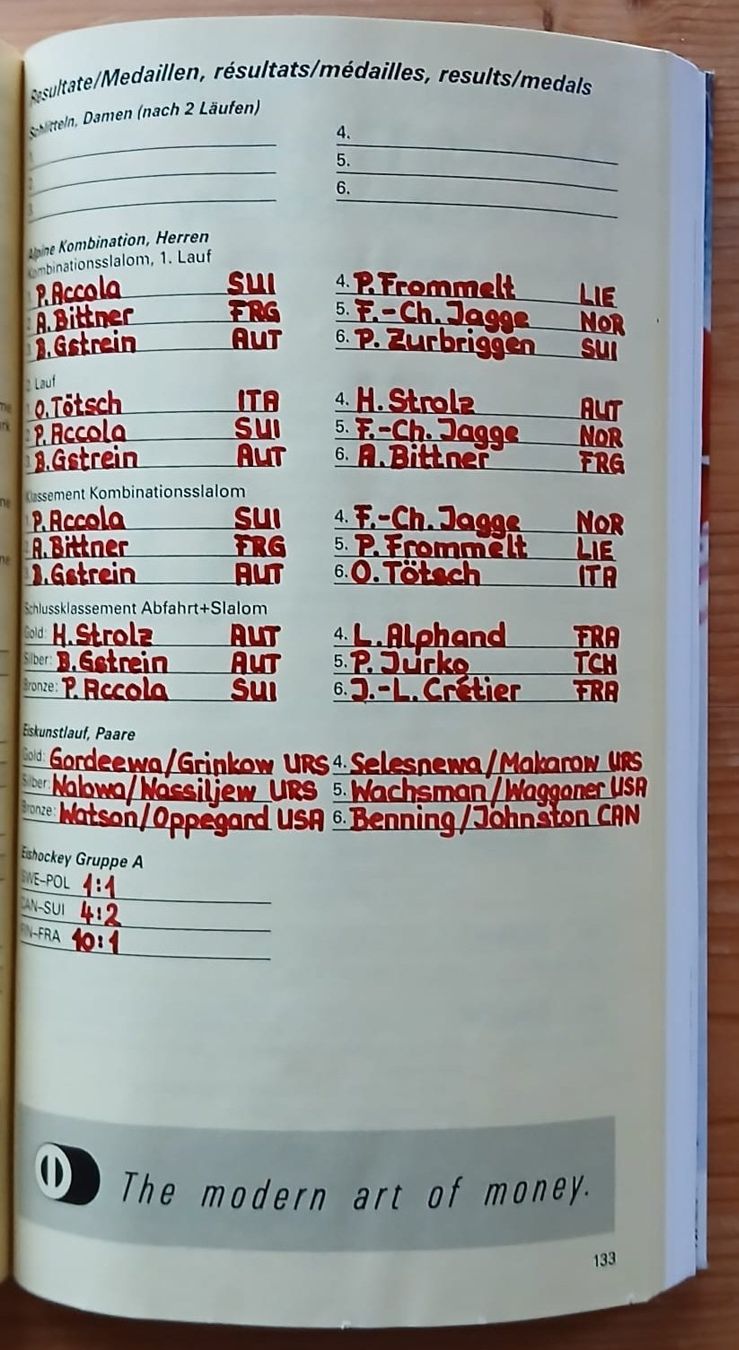 Resultate/Medaillen, résultats/médailles, results/medals
Schlitteln, Damen (nach 2 Läufen)
1. 4.
2. 5.
3. 6.
Alpine Kombination, Herren
Kombinationsslalom, 1. Lauf
1. P. Accola SUI 4. P. Frommelt LIE
2. A. Bittner FRG 5. F.-Ch. Jagge NOR
3. B. Gstrein AUT 6. P. Zurbriggen SUI
2. Lauf
1. O. Tötsch ITA 4. H. Strolz AUT
2. P. Accola SUI 5. F.-Ch. Jagge NOR
3. B. Gstrein AUT 6. A. Bittner FRG
Klassement Kombinationsslalom
1. P. Accola SUI 4. F.-Ch. Jagge NOR
2. A. Bittner FRG 5. P. Frommelt LIE
3. B. Gstrein AUT 6. O. Tötsch ITA
Schlussklassement Abfahrt+Slalom
Gold: H. Strolz AUT 4. L. Alphand FRA
Silber: B. Gstrein AUT 5. P. Jurko TCH
Bronze: P. Accola SUI 6. J.-L. Crétier FRA
Eiskunstlauf, Paare
Gold: Gordeewa/Grinkow URS 4. Selesnewa/Makarow URS
Silber: Walowa/Wassiljew URS 5. Wachsman/Waggoner USA
Bronze: Watson/Oppegard USA 6. Benning/Johnston CAN
Eishockey Gruppe A
SWE–POL 1:1
CAN–SUI 4:2
FIN–FRA 10:1
The modern art of money.
133